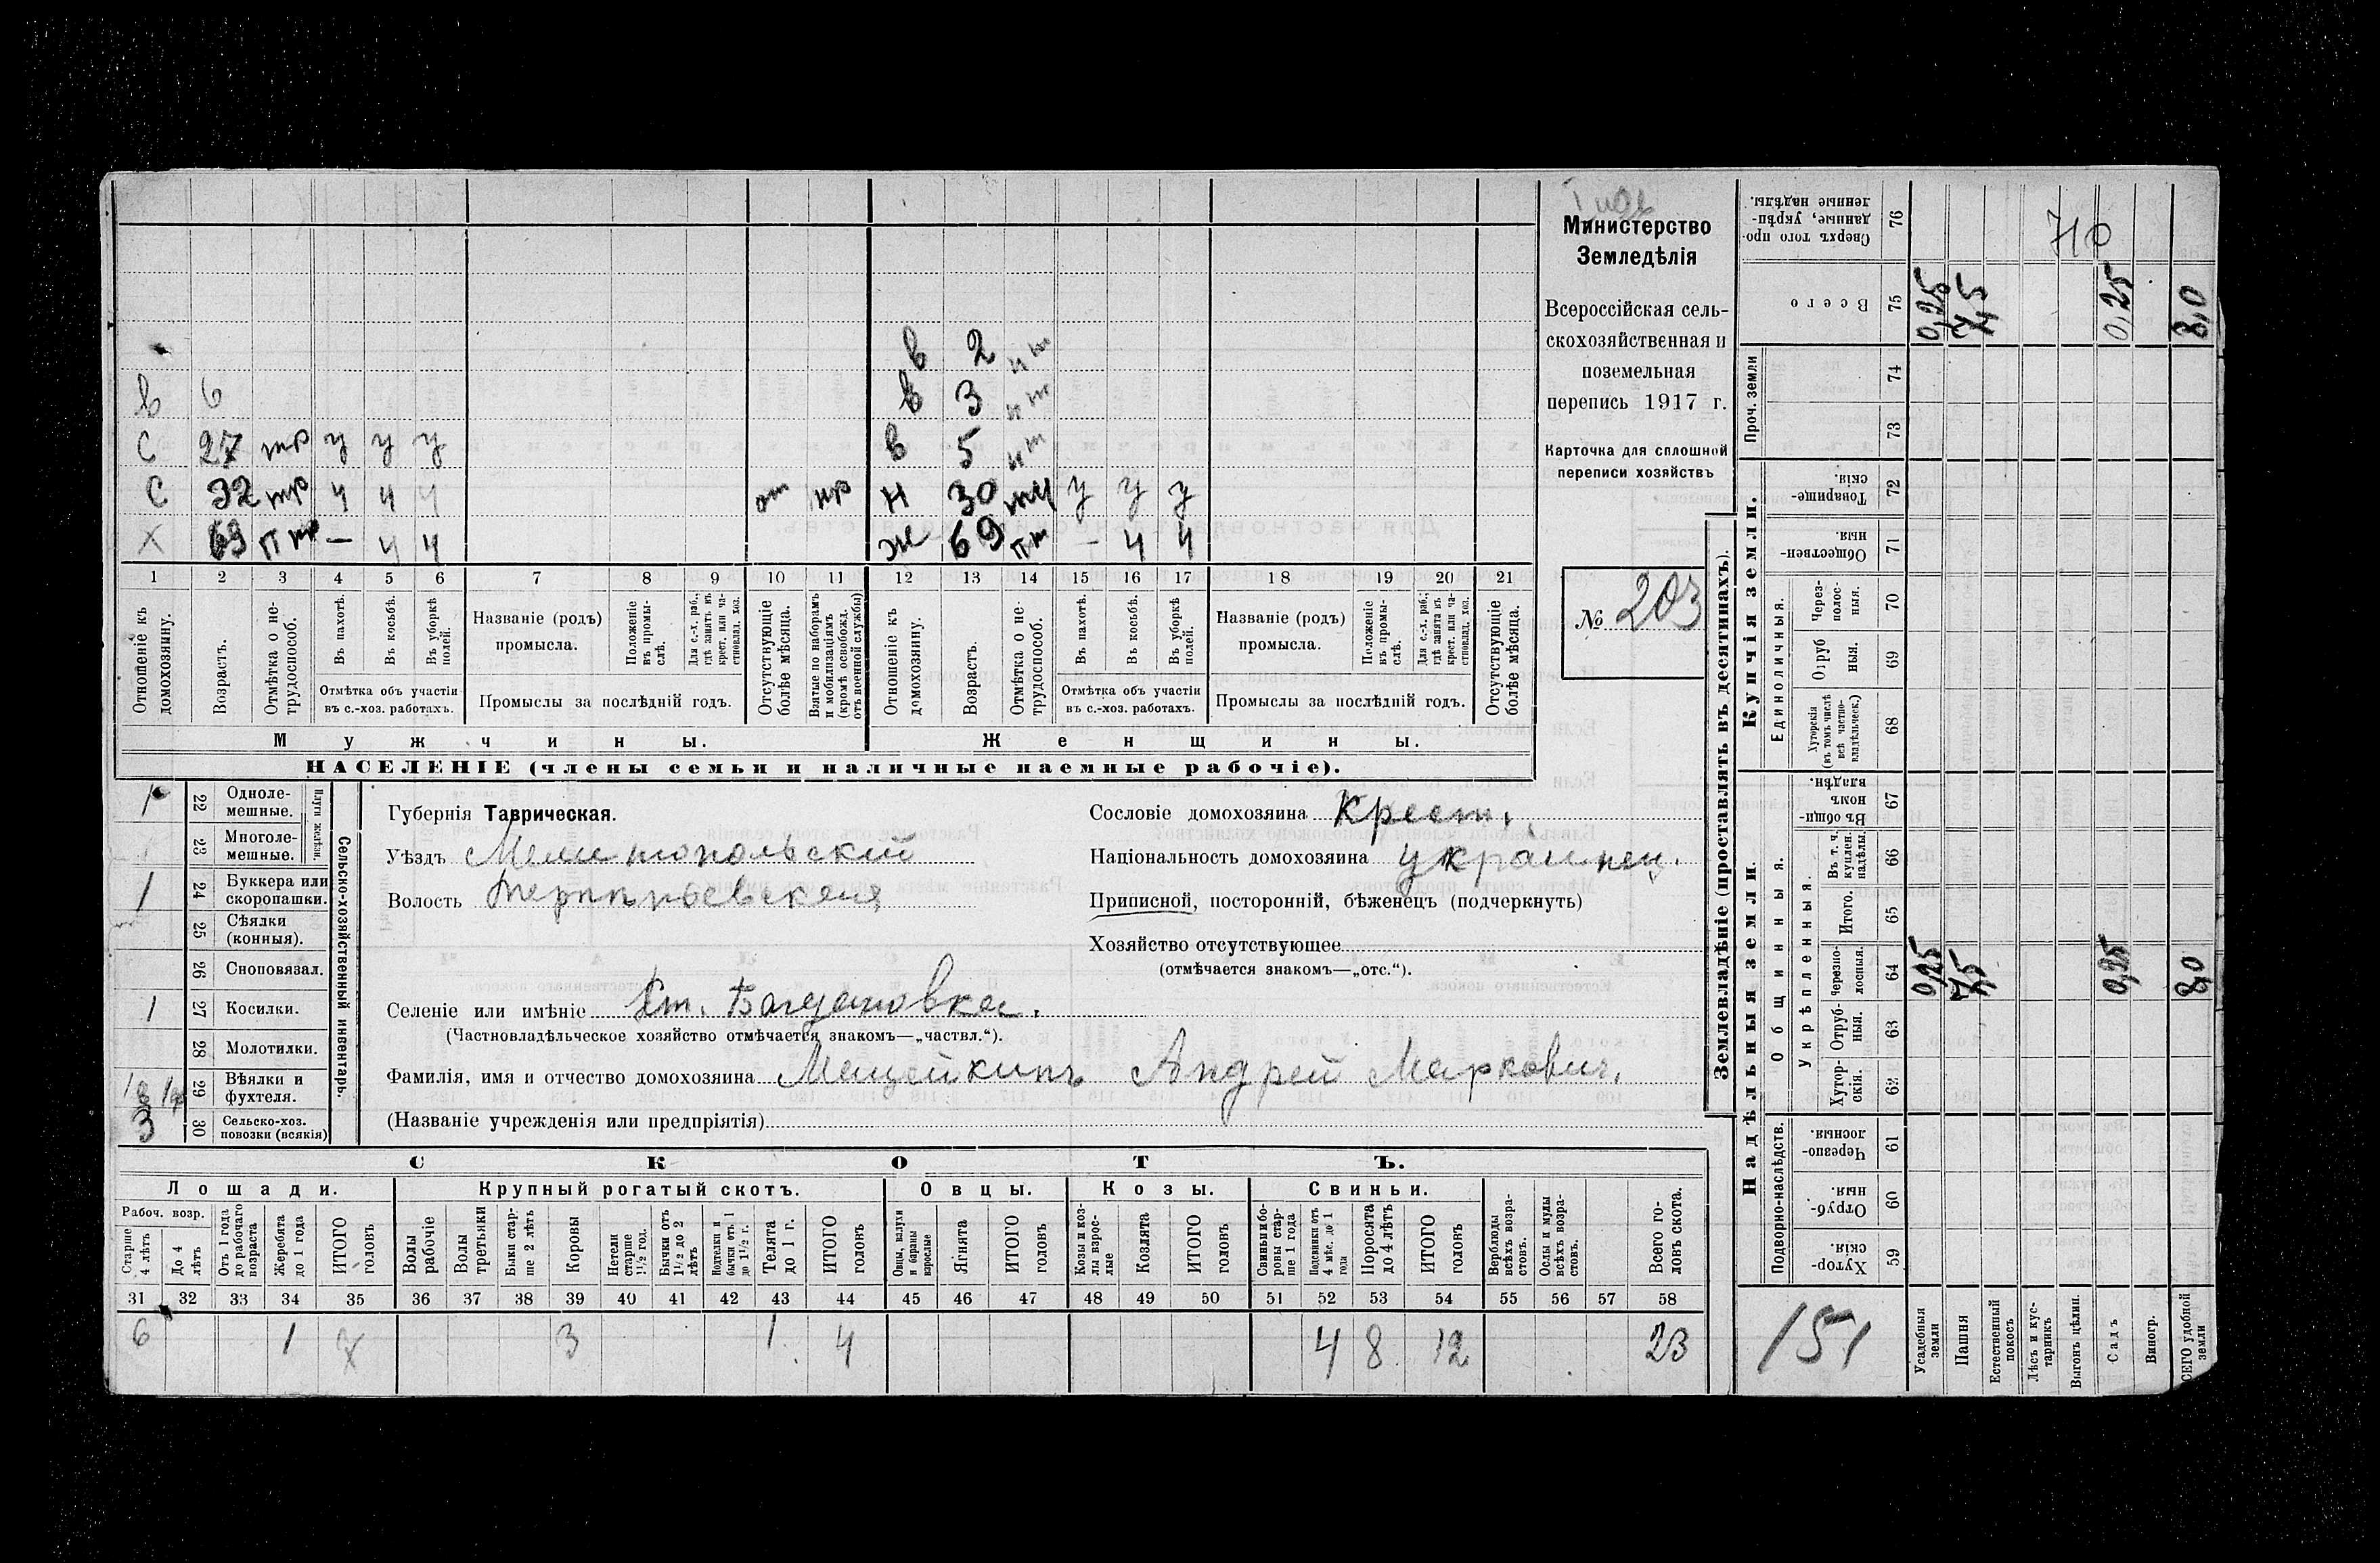 в 2 нт
в 6 в 3 нт
С 27 тр у у у в 5 нт
С 32 тр ч ч ч от нр н 30 у у у
Х 69 п тр — ч ч ж 69 пт — ч ч
1 2 3 4 5 6 7 8 9 10 11 12 13 14 15 16 17 18 19 20 21
Отношеніе къ домохозяину.
Возрастъ.
Отмѣтка о не-трудоспособ.
Въ пахотѣ.
Въ косьбѣ.
Въ уборкѣ полей.
Отмѣтка объ участіи
въ с.-хоз. работахъ.
Названіе (родъ)
промысла.
Положеніе въ промы-слѣ.
Для с.-х. раб., гдѣ занятъ въ крест. или ча-стновлад. хоз.
Промыслы за послѣдній годъ.
Отсутствующіе болѣе мѣсяца.
Взятые по наборамъ и мобилизаціямъ (кромѣ освобожд. отъ военной службы)
Отношеніе къ домохозяину.
Возрастъ.
Отмѣтка о не-трудоспособ.
Въ пахотѣ.
Въ косьбѣ.
Въ уборкѣ полей.
Отмѣтка объ участіи
въ с.-хоз. работахъ.
Названіе (родъ)
промысла.
Положеніе въ промы-слѣ.
Для с.-х. раб., гдѣ занята въ крест. или ча-стновлад. хоз.
Промыслы за послѣдній годъ.
Отсутствующіе болѣе мѣсяца.
Мужчины. Женщины.
НАСЕЛЕНІЕ (члены семьи и наличные наемные рабочіе).
Министерство
Земледѣлія
Всероссійская сель-
скохозяйственная и
поземельная
перепись 1917 г.
Карточка для сплошной
переписи хозяйствъ
№ 203
Сельско-хозяйственный инвентарь.
Плуги желѣзн.
1 22 Однолемешные.
23 Многолемешные.
1 24 Буккера или скоропашки.
25 Сѣялки (конныя).
26 Сноповязал.
1 27 Косилки.
28 Молотилки.
29 Вѣялки и фухтеля.
3 30 Сельско-хоз. повозки (всякія)
Губернія Таврическая.
Уѣздъ Мелитопольскій
Волость
Селеніе или имѣніе Богдановка.
(Частновладѣльческое хозяйство отмѣчается знакомъ—„частвл.“).
Фамилія, имя и отчество домохозяина Мацейкинъ Андрей Маркович.
(Названіе учрежденія или предпріятія)
Сословіе домохозяина Крест.
Національность домохозяина украинец.
Приписной, посторонній, бѣженецъ (подчеркнуть)
Хозяйство отсутствующее
(отмѣчается знакомъ—„отс.“).
СКОТЪ.
Лошади. Крупный рогатый скотъ. Овцы. Козы. Свиньи.
Рабоч. возр.
Старше 4 лѣтъ
До 4 лѣтъ
Отъ 1 года до рабочаго возраста
Жеребята до 1 года
ИТОГО головъ
Волы рабочіе
Волы третьяки
Быки стар-ше 2 лѣтъ
Коровы
Нетели старше 1½ год.
Бычки отъ 1½ до 2 лѣтъ
Нетелки и бычки отъ 1 до 1½ г.
Телята до 1 г.
ИТОГО головъ
Овцы, валухи и бараны взрослые
Ягнята
ИТОГО головъ
Козы и коз-лы взрос-лые
Козлята
ИТОГО головъ
Свиньи и бо-ровы стар-ше 1 года
Подсвинки отъ 4 мѣс. до 1 года
Поросята до 4 лѣтъ
ИТОГО головъ
Верблюды всѣхъ возра-стовъ.
Ослы и мулы всѣхъ возра-стовъ.
Всего го-ловъ скота.
31 32 33 34 35 36 37 38 39 40 41 42 43 44 45 46 47 48 49 50 51 52 53 54 55 56 57 58
6 1 7 3 1 4 4 8 12 23
Землевладѣніе (проставлять въ десятинахъ).
Купчія земли.
Надѣльныя земли.
Сверхъ того про-данные, укрѣп-ленные надѣлы. 76 710
Всего 75 0,25 7,5 0,25 8,0
Проч. земли 74
73
Товарище-скія. 72
Обществен-ныя. 71
Единоличныя.
Через-полос-ныя. 70
Отруб-ныя. 69
Хуторскія (въ томъ числѣ всѣ частно-владѣльческ.) 68
Общинныя.
Въ общин-номъ владѣн. 67
Укрѣпленныя.
Въ т. ч. куплен. надѣлы. 66
Итого. 65
Черезпо-лосныя. 64 0,25 7,5 0,25 8,0
Отруб-ныя. 63
Хутор-скія. 62
Подворно-наслѣдств.
Черезпо-лосныя. 61
Отруб-ныя. 60
Хутор-скія. 59
151
Усадебныя земли
Пашня
Естественный покосъ
Лѣсъ и кус-тарникъ
Выгонъ цѣлин.
Садъ
Виногр.
ВСЕГО удобной земли